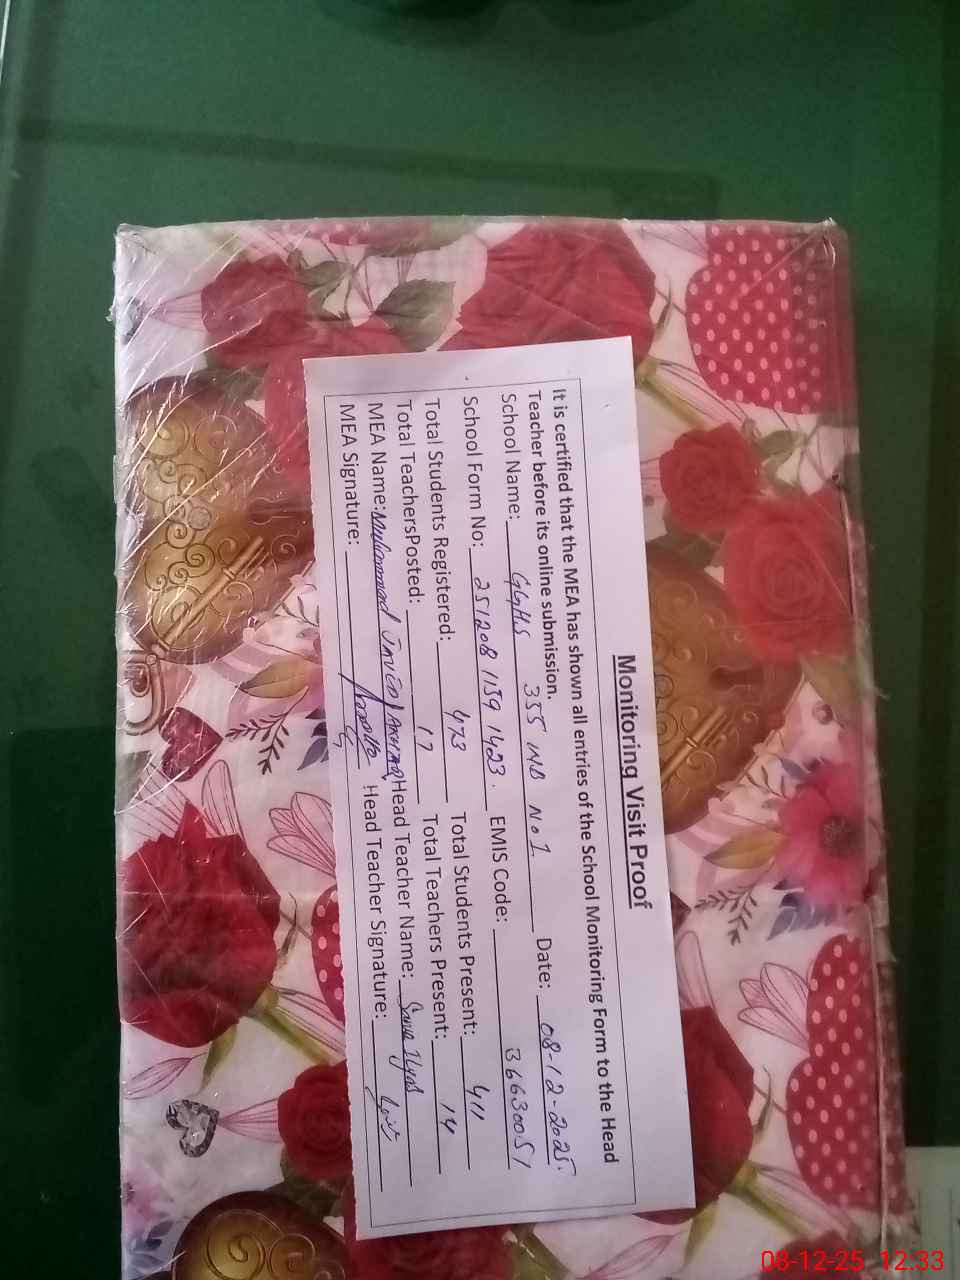 Monitoring Visit Proof
It is certified that the MEA has shown all entries of the School Monitoring Form to the Head
Teacher before its online submission.
School Name: GGHS 355 WB No 1 Date: 08-12-2025.
School Form No: 251208 1159 1423. EMIS Code: 36630051
Total Students Registered: 473 Total Students Present: 411
Total TeachersPosted: 17 Total Teachers Present: 14
MEA Name: Muhammad Javid Akhtar Head Teacher Name: Sana Ilyas
MEA Signature: Head Teacher Signature:
08-12-25 12:33